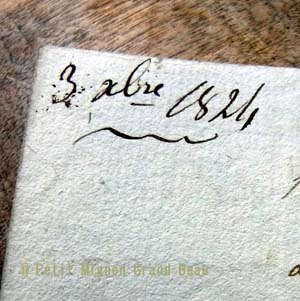 3 xbre 1824
© Petit Mignon Grand Beau